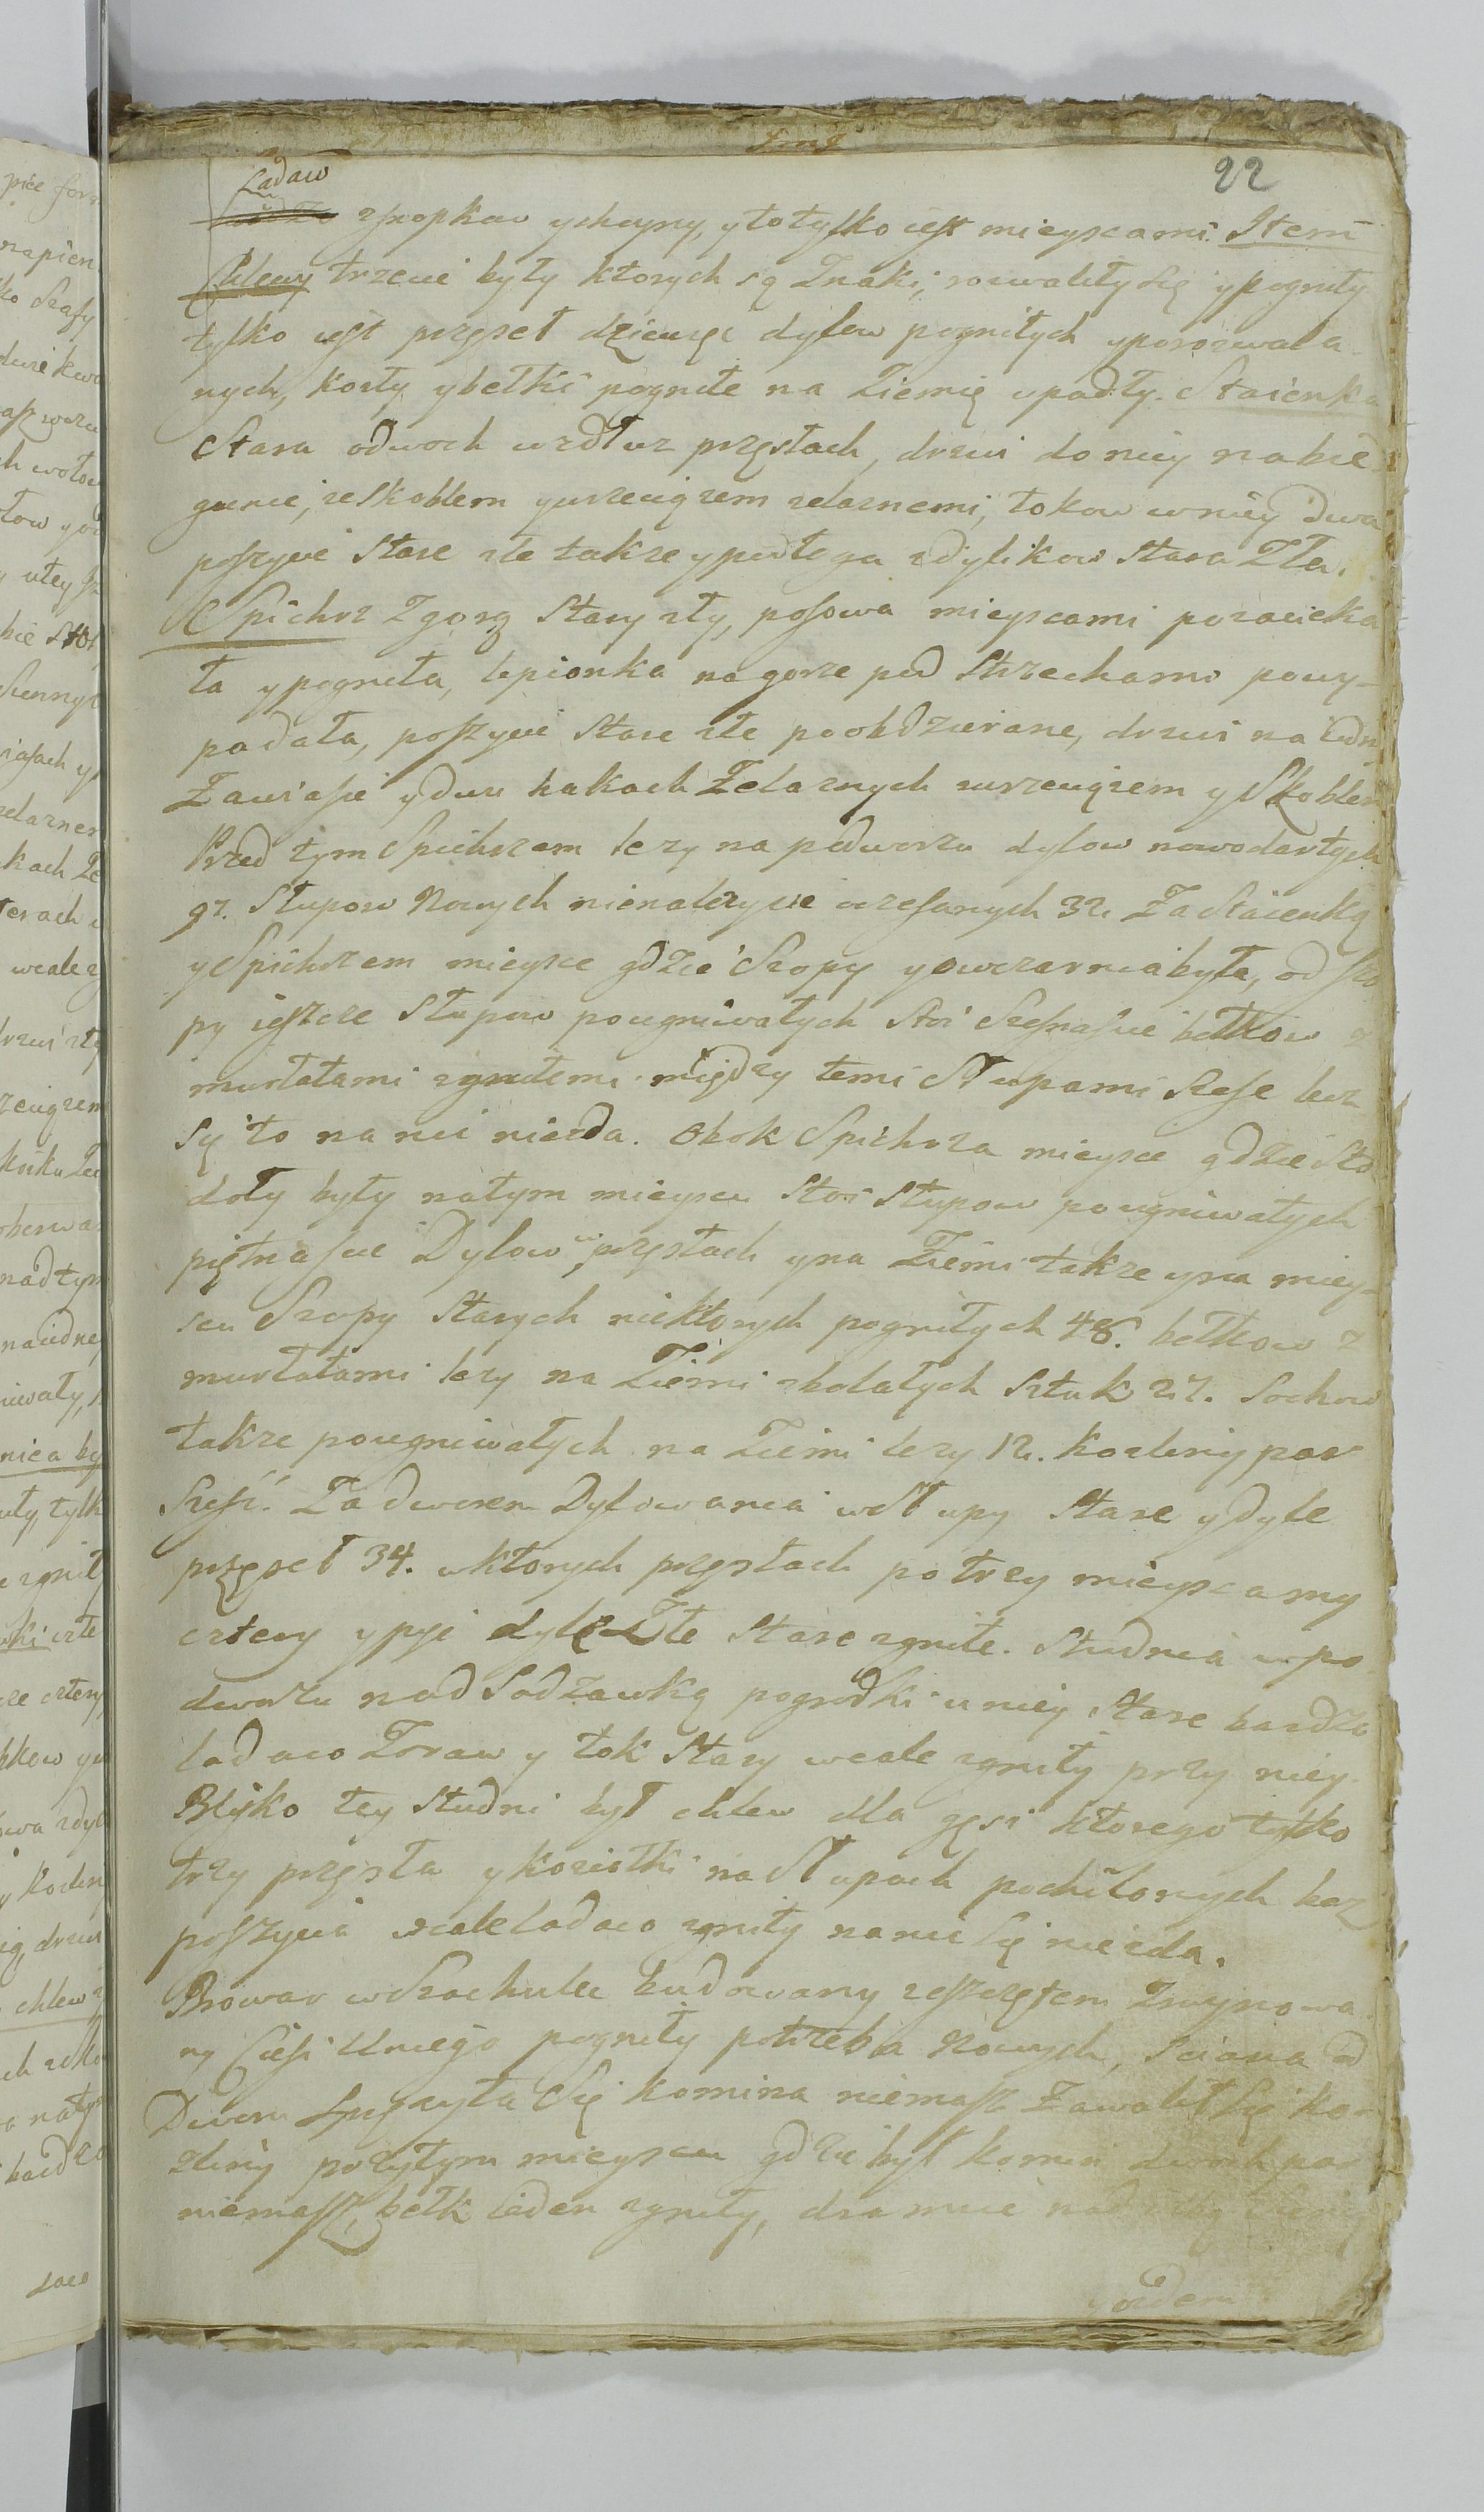 22
Ladaw
zsnopkow ychoyny, y to tylko iest mieyscami. Item
Chlewy trzecie były ktorych są Znaki, rozwaliły się ypogniły
tylko iest przęseł dziewięć dylow pogniłych yporozwala-
nych, kozły ybelki pogniłe na Ziemię upadły. Staienka
Stara odwoch wzdłuz przęstach, drzwi do niey nabie-
gunie, zeskoblem ywrzeciązem zelaznemi, tokow wniey dwa
poszycie stare złe takze ypodłoga zdylikow stara Zła.
Spichrz Zgorą Stary zły, posowa mieyscami pozacieka-
ła ypogniła, lepionka nagorze pod Strzechami powy-
padała, poszycie stare złe poobdzierane, drzwi na iedn
Zawiasie ydwu hakach Zelaznych zwrzeciązem y Skoblem
Przed tym Spichrzem lezy na podworzu dylow nowodartych
97. Słupow Nowych nienalezycie orzesanych 32. Za Staienką
y Spichrzem mieysce gdzie Szopy yowczarnia była, od szo
py ieszcze Słupow pougniwałych stoi Szesnaście belkow z
murłatami zgniłemi między temi Słupami Szesc lecz
się to na nic niezda. Obok Spichrza mieysce gdzie Sto
doły były natym mieyscu stoi Słupow pougniwałych
piętnaście Dylow w przęstach yna Ziemi takze yna miey-
scu Szopy starych niektorych pogniłych 48. belkow z
murłatami lezy na Ziemi zbolałych Sztuk 27. Sochow
takze pougniwałych na Ziemi lezy 12. Kozliny par
Sześć. Za dworem Dylowania wSłupy Stare ydyle
przęseł 34. wktorych przęstach po trzy mieyscamy
cztery ypię dyle Złe stare zgniłe. Studnia wpo-
dworzu nad Sadzawką pogrodki u niey stare bardzo
ladaco Zoraw y tok stary wcale zgniły przy niey.
Blisko tey studni był chlew dla gęsi ktorego tylko
trzy przęsła ykoziołki na Słupach pochilonych bez
poszycia wcale ladaco zgniły nanic się niezda.
Browar wSzachulec budowany zeszczętem Zruynowa-
ny Ciesi Uniego pogniły potrzeba Nowych, Sciana od
Dworu się komina niemasz Zawalił się ko-
zliny przytym mieyscu gdzie był komin dwoch par
niemasz, belk ieden zgniły, dramnie